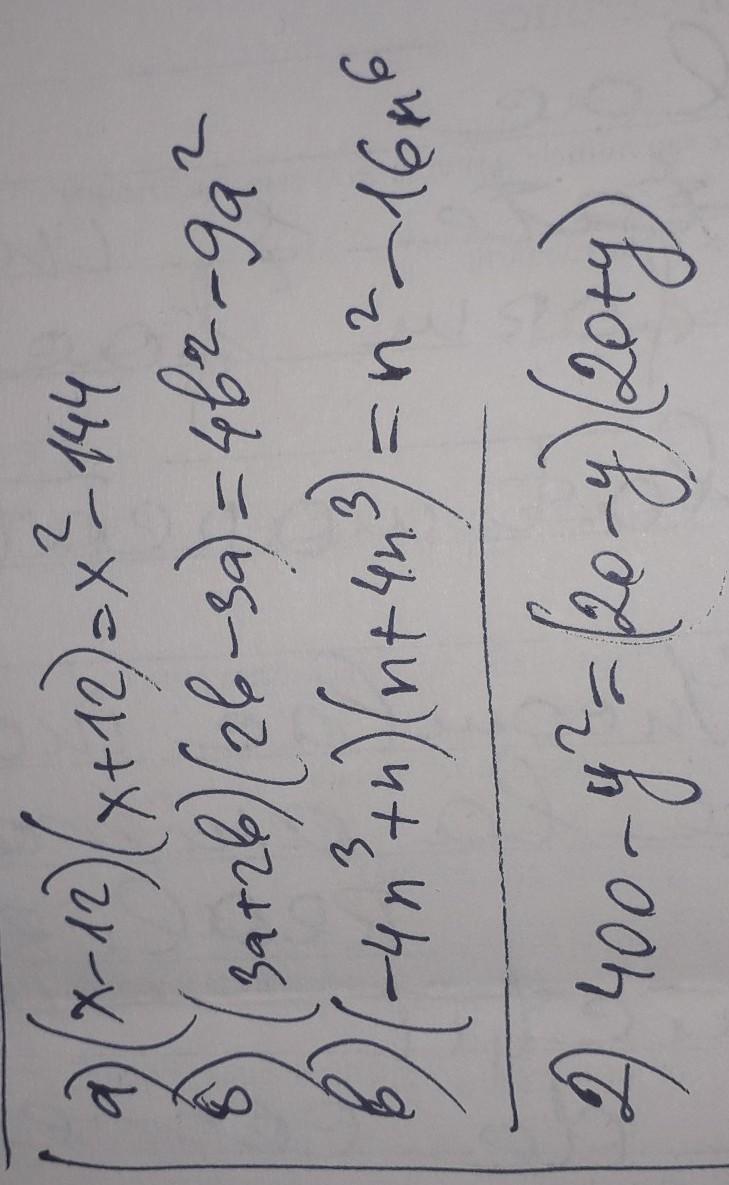 а) (x-12)(x+12)=x²-144
б) (3a+2b)(2b-3a)=4b²-9a²
в) (-4n³+n)(n+4n³)=n²-16n⁶
2) 400-y²=(20-y)(20+y)